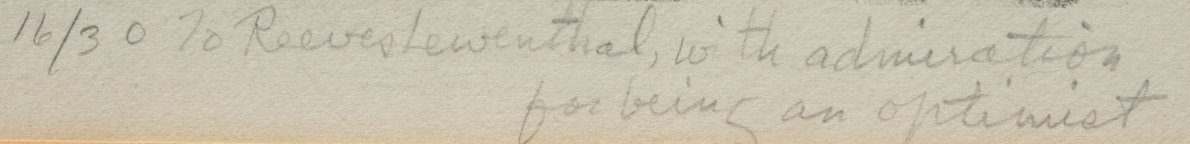 16/30 To Reeves Lewenthal, with admiration
for being an optimist